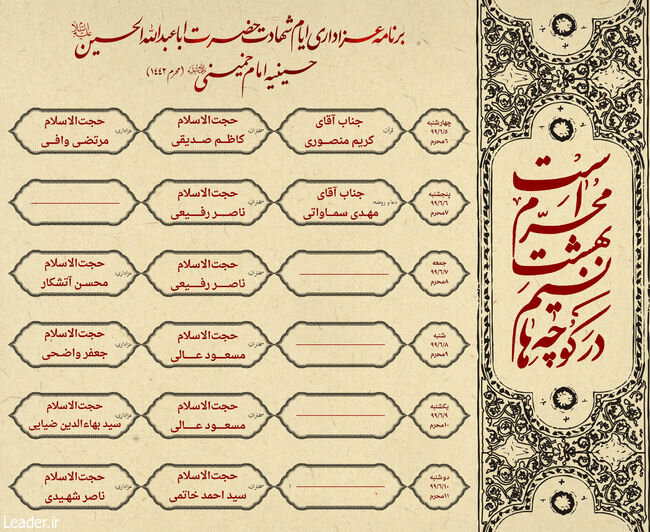 برنامه عزاداری ایام شهادت حضرت اباعبدالله الحسین علیه‌السلام
حسینیه امام خمینی (محرم ۱۴۴۲)
چهارشنبه
۹۹/۶/۵
۶محرم
قرآن:
جناب آقای
کریم منصوری
سخنران:
حجت‌الاسلام
کاظم صدیقی
عزاداری:
حجت‌الاسلام
مرتضی وافی
پنجشنبه
۹۹/۶/۶
۷محرم
دعا و روضه:
جناب آقای
مهدی سماواتی
سخنران:
حجت‌الاسلام
ناصر رفیعی
جمعه
۹۹/۶/۷
۸محرم
سخنران:
حجت‌الاسلام
ناصر رفیعی
عزاداری:
حجت‌الاسلام
محسن آتشکار
شنبه
۹۹/۶/۸
۹محرم
سخنران:
حجت‌الاسلام
مسعود عالی
عزاداری:
حجت‌الاسلام
جعفر واضحی
یکشنبه
۹۹/۶/۹
۱۰محرم
سخنران:
حجت‌الاسلام
مسعود عالی
عزاداری:
حجت‌الاسلام
سید بهاءالدین ضیایی
دوشنبه
۹۹/۶/۱۰
۱۱محرم
سخنران:
حجت‌الاسلام
سید احمد خاتمی
عزاداری:
حجت‌الاسلام
ناصر شهیدی
محرم است
در کوچه‌ها نسیم بهشت
Leader.ir